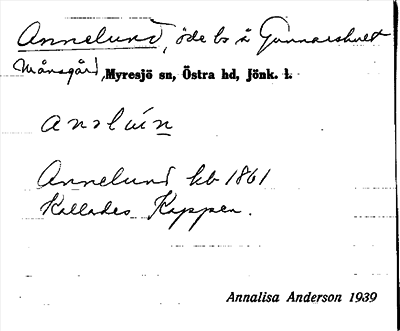 Annelund, öde bs å Gunnarshult
Månsgård, Myresjö sn, Östra hd, Jönk. l.
Annelund kb 1861
Kallades Kappen.
Annalisa Anderson 1939